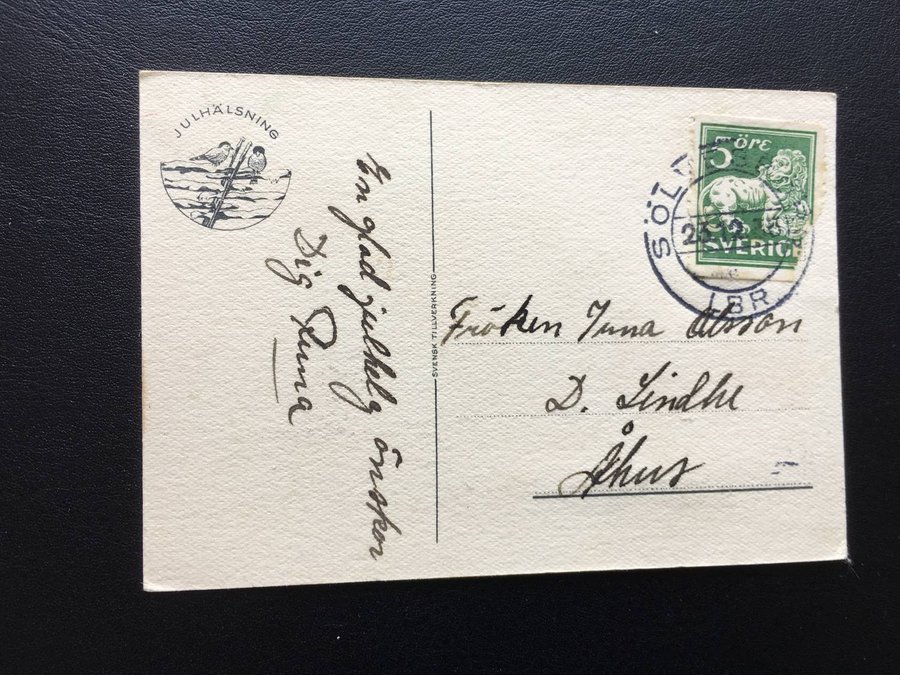 JULHÄLSNING
En glad julhelg önskar
Dig Runa
SVENSK TILLVERKNING
5 ÖRE
SVERIGE
LBR
Fröken Irma Olsson
D. Lindhe
Åhus